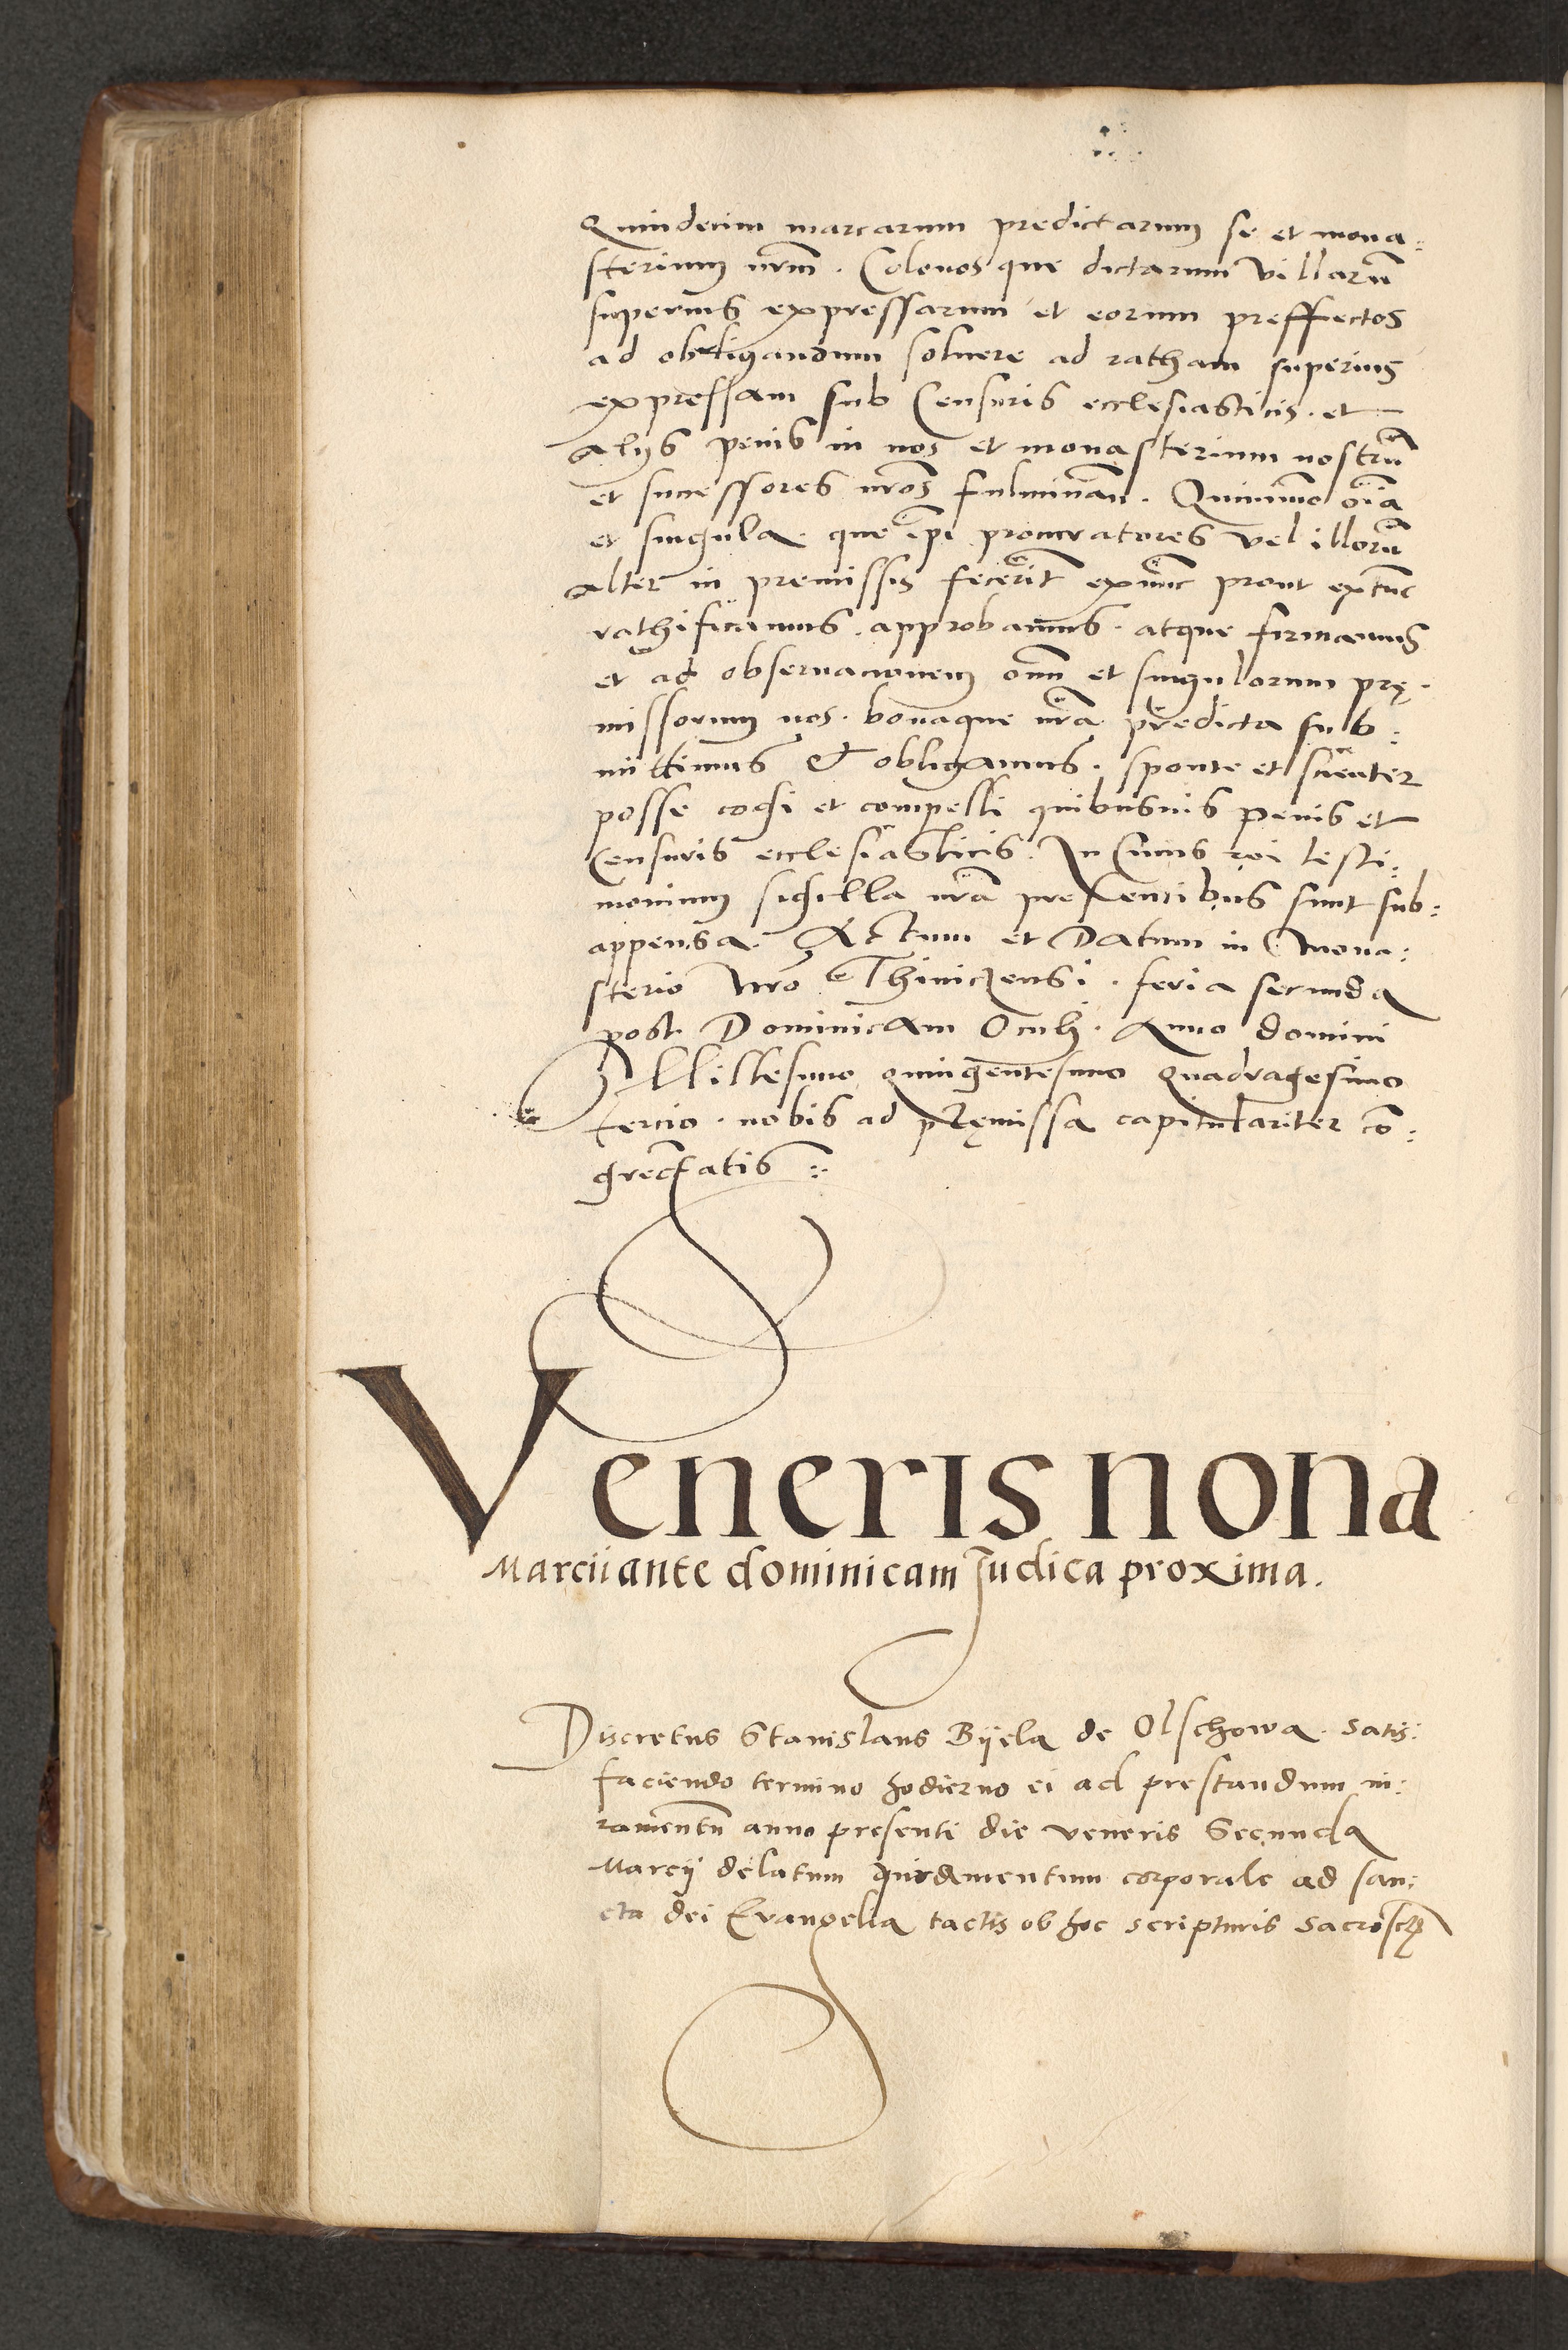 Quindecim marcarum predictarum se et mona:
sterium nrm̄. Colonosque dictarum villarū
superius expressarum et eorum preffectos
ad obligandum soluere ad ratham superius
expressam sub Censuris ecclesiasticis. et
alijs penis in nos et monasterium nostrū
et successores nr̄os fulminan̄. Quinimmo oīa
et singula. que ip̄i procuratores vel illorū
alter in premissis fecerīt exnūc prout extūc
rathificamus. approbamus. atque firmamus
et ad obseruacionem om̄ et singulorum prę.
missorum nos. bonaque nr̄a predicta sub:
mittimus & obligamus. sponte et scienter
posse cogi et compelli quibusuis penis et
Censuris ecclesiasticis. In Cuius rei testi:
monium sigilla nr̄a presentibus sunt sub:
appensa. Actum et Datum in Mona:
sterio nr̄o Thiniczensi. feria secunda
post Dominicam Oculi. Anno domini
Millesimo quingentesimo Quadragesimo
tercio. nobis ad pręmissa capitulariter cō:
gregatis :.
Veneris nona
Marcii ante dominicam Judica proxima.
Discretus Stanislaus Bijela de Olschowa. satis:
faciendo termino hodierno ei ad prestandum iu:
ramentū anno presenti die veneris Secunda
Marcij delatum Juramentum corporale ad san:
cta dei Evangelia tactis ob hoc scripturis